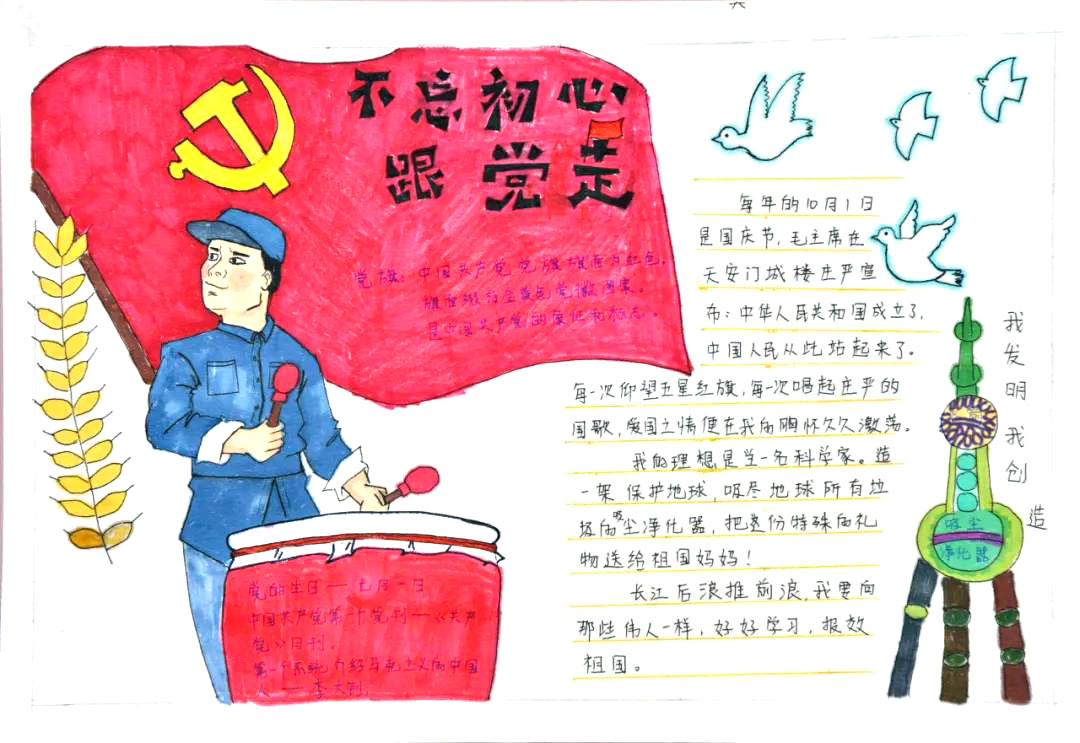 不忘初心
跟党走
党旗：中国共产党党旗旗面为红色，
旗面缀有金黄色党徽图案。
是中国共产党的象征和标志。
每年的10月1日
是国庆节，毛主席在
天安门城楼庄严宣
布：中华人民共和国成立了，
中国人民从此站起来了。
每一次仰望五星红旗，每一次唱起庄严的
国歌，爱国之情便在我的胸怀久久激荡。
我的理想是当一名科学家。造
一架保护地球，吸尽地球所有垃
圾的吸尘净化器，把这份特殊的礼
物送给祖国妈妈！
长江后浪推前浪，我要向
那些伟人一样，好好学习，报效
祖国。
我发明我创造
吸尘
净化器
党的生日——七月一日
中国共产党第一个党刊——《共产
党》月刊。
第一个系统介绍马克主义的中国
人——李大钊